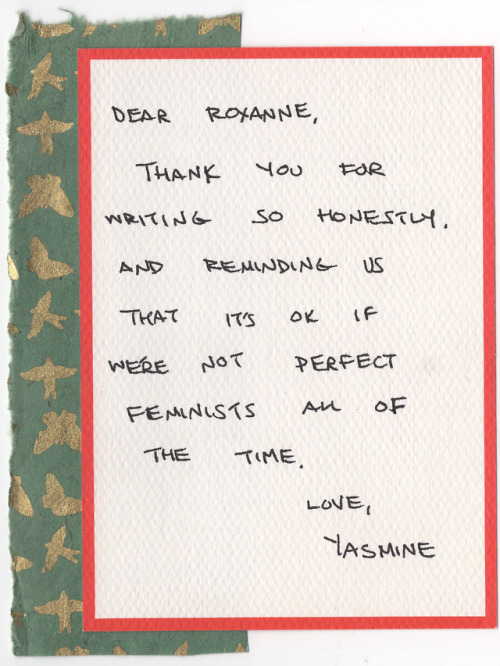 DEAR ROXANNE,
THANK YOU FOR
WRITING SO HONESTLY.
AND REMINDING US
THAT IT'S OK IF
WE'RE NOT PERFECT
FEMINISTS ALL OF
THE TIME.
LOVE,
YASMINE